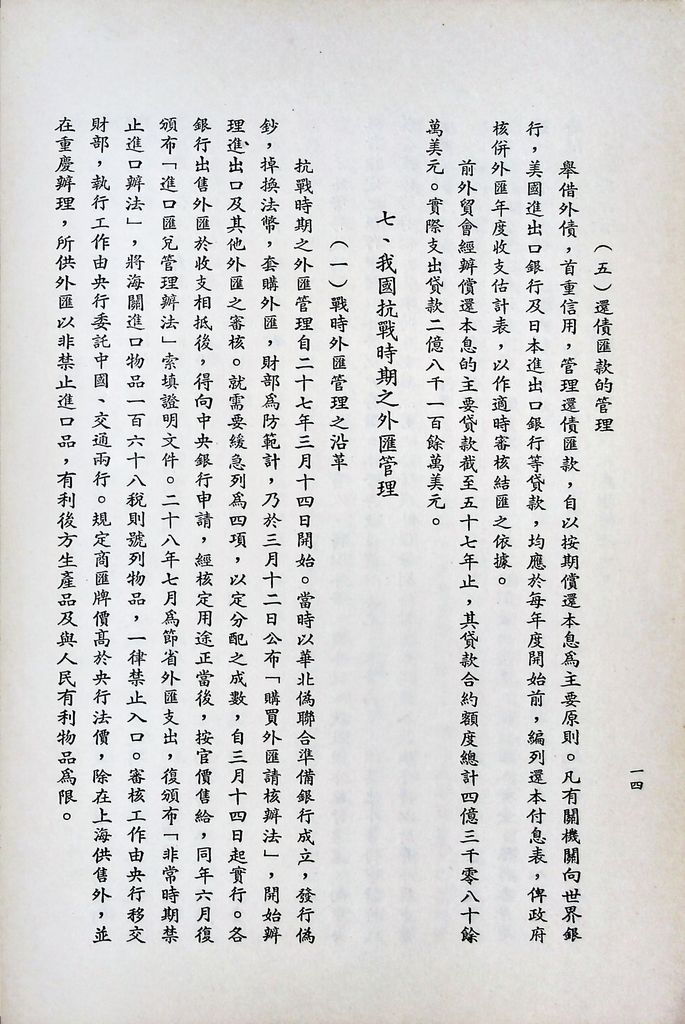 （五）還債匯款的管理
舉借外債，首重信用，管理還債匯款，自以按期償還本息為主要原則。凡有關機關向世界銀
行，美國進出口銀行及日本進出口銀行等貸款，均應於每年度開始前，編列還本付息表，俾政府
核併外匯年度收支估計表，以作適時審核結匯之依據。
前外貿會經辦償還本息的主要貸款截至五十七年止，其貸款合約額度總計四億三千零八十餘
萬美元。實際支出貸款二億八千一百餘萬美元。
七、我國抗戰時期之外匯管理
（一）戰時外匯管理之沿革
抗戰時期之外匯管理自二十七年三月十四日開始。當時以華北偽聯合準備銀行成立，發行偽
鈔，掉換法幣，套購外匯，財部為防範計，乃於三月十二日公布「購買外匯請核辦法」，開始辦
理進出口及其他外匯之審核。就需要緩急列為四項，以定分配之成數，自三月十四日起實行。各
銀行出售外匯於收支相抵後，得向中央銀行申請，經核定用途正當後，按官價售給，同年六月復
頒布「進口匯兌管理辦法」索填證明文件。二十八年七月為節省外匯支出，復頒布「非常時期禁
止進口辦法」，將海關進口物品一百六十八稅則號列物品，一律禁止入口。審核工作由央行移交
財部，執行工作由央行委託中國、交通兩行。規定商匯牌價高於央行法價，除在上海供售外，並
在重慶辦理，所供外匯以非禁止進口品，有利後方生產品及與人民有利物品為限。
一四